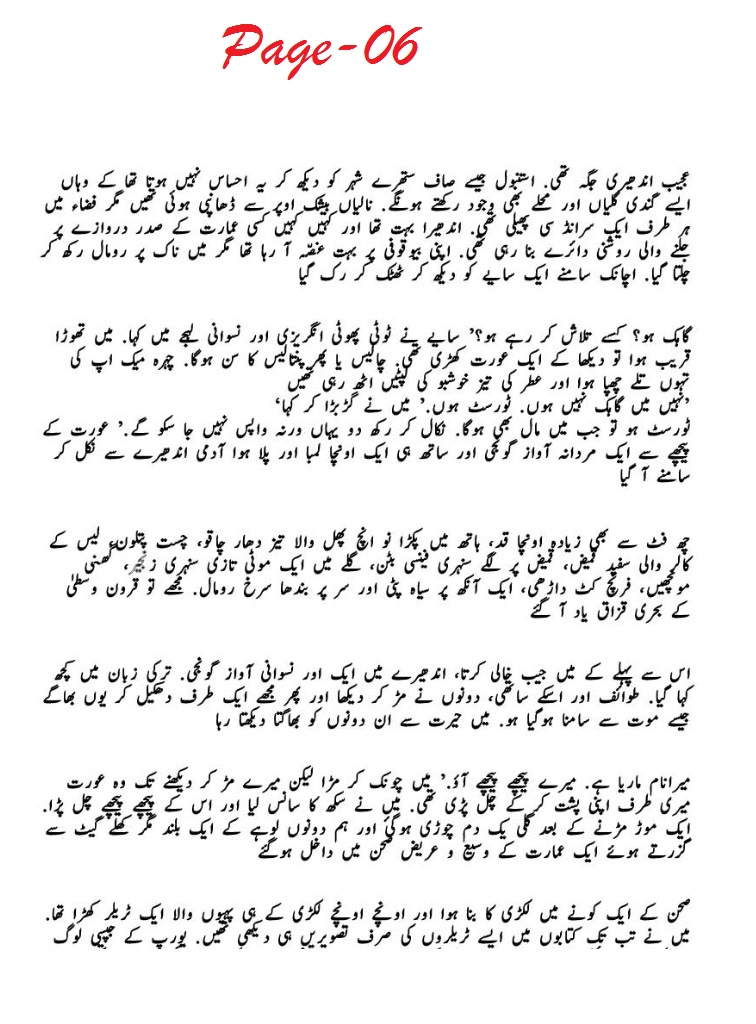 Page-06
عجیب اندھیری جگہ تھی. استنبول جیسے صاف ستھرے شہر کو دیکھ کر یہ احساس نہیں ہوتا تھا کے وہاں
ایسے گندی گلیاں اور محلے بھی وجود رکھتے ہونگے. نالیاں بیشک اوپر سے ڈھانپی ہوئی تھیں مگر فضاء میں
ہر طرف ایک سرانڈ سی پھیلی تھی. اندھیرا بہت تھا اور کہیں کہیں کسی عمارت کے صدر دروازے پر
جلنے والی روشنی دائرے بنا رہی تھی. اپنی بیوقوفی پر بہت غصّہ آ رہا تھا مگر میں ناک پر رومال رکھ کر
چلتا گیا. اچانک سامنے ایک سایے کو دیکھ کر ٹھٹک کر رک گیا
گاہک ہو؟ کسے تلاش کر رہے ہو؟' سایے نے ٹوٹی پھوٹی انگریزی اور نسوانی لہجے میں کہا. میں تھوڑا
قریب ہوا تو دیکھا کے ایک عورت کھڑی تھی. چالیس یا پھر پنتالیس کا سن ہوگا. چہرہ میک اپ کی
تہوں تلے چھپا ہوا اور عطر کی تیز خوشبو کی لپٹیں اٹھ رہی تھیں
'نہیں میں گاہک نہیں ہوں. ٹورسٹ ہوں.' میں نے گڑبڑا کر کہا'
ٹورسٹ ہو تو جب میں مال بھی ہوگا. نکال کر رکھ دو یہاں ورنہ واپس نہیں جا سکو گے.' عورت کے
پیچھے سے ایک مردانہ آواز گونجی اور ساتھ ہی ایک اونچا لمبا اور پلا ہوا آدمی اندھیرے سے نکل کر
سامنے آ گیا
چھ فٹ سے بھی زیادہ اونچا قد، ہاتھ میں پکڑا نو انچ پھل والا تیز دھار چاقو، چست پتلون، لیس کے
کالر والی سفید قمیض، قمیض پر لگے سنہری فینسی بٹن، گلے میں ایک موٹی تازی سنہری زنجیر، گھنی
مونچھیں، فرنچ کٹ داڑھی، ایک آنکھ پر سیاہ پٹی اور سر پر بندھا سرخ رومال. مجھے تو قرون وسطیٰ
کے بحری قزاق یاد آ گئے
اس سے پہلے کے میں جیب خالی کرتا، اندھیرے میں ایک اور نسوانی آواز گونجی. ترکی زبان میں کچھ
کہا گیا. طوائف اور اسکے ساتھی، دونوں نے مڑ کر دیکھا اور پھر مجھے ایک طرف دھکیل کر یوں بھاگے
جیسے موت سے سامنا ہوگیا ہو. میں حیرت سے ان دونوں کو بھاگتا دیکھتا رہا
میرانام ماریا ہے. میرے پیچھے پیچھے آؤ.' میں چونک کر مڑا لیکن میرے مڑ کر دیکھنے تک وہ عورت
میری طرف اپنی پشت کر کے چل پڑی تھی. میں نے سکھ کا سانس لیا اور اس کے پیچھے پیچھے چل پڑا.
ایک موڑ مڑنے کے بعد گلی یک دم چوڑی ہوگئی اور ہم دونوں لوہے کے ایک بلند مگر کھلے گیٹ سے
گزرتے ہوئے ایک عمارت کے وسیع و عریض صحن میں داخل ہوگئے
صحن کے ایک کونے میں لکڑی کا بنا ہوا اور اونچے اونچے لکڑی کے ہی پہیوں والا ایک ٹریلر کھڑا تھا.
میں نے تب تک کتابوں میں ایسے ٹریلروں کی صرف تصویریں ہی دیکھی تھیں. یورپ کے جپسی لوگ